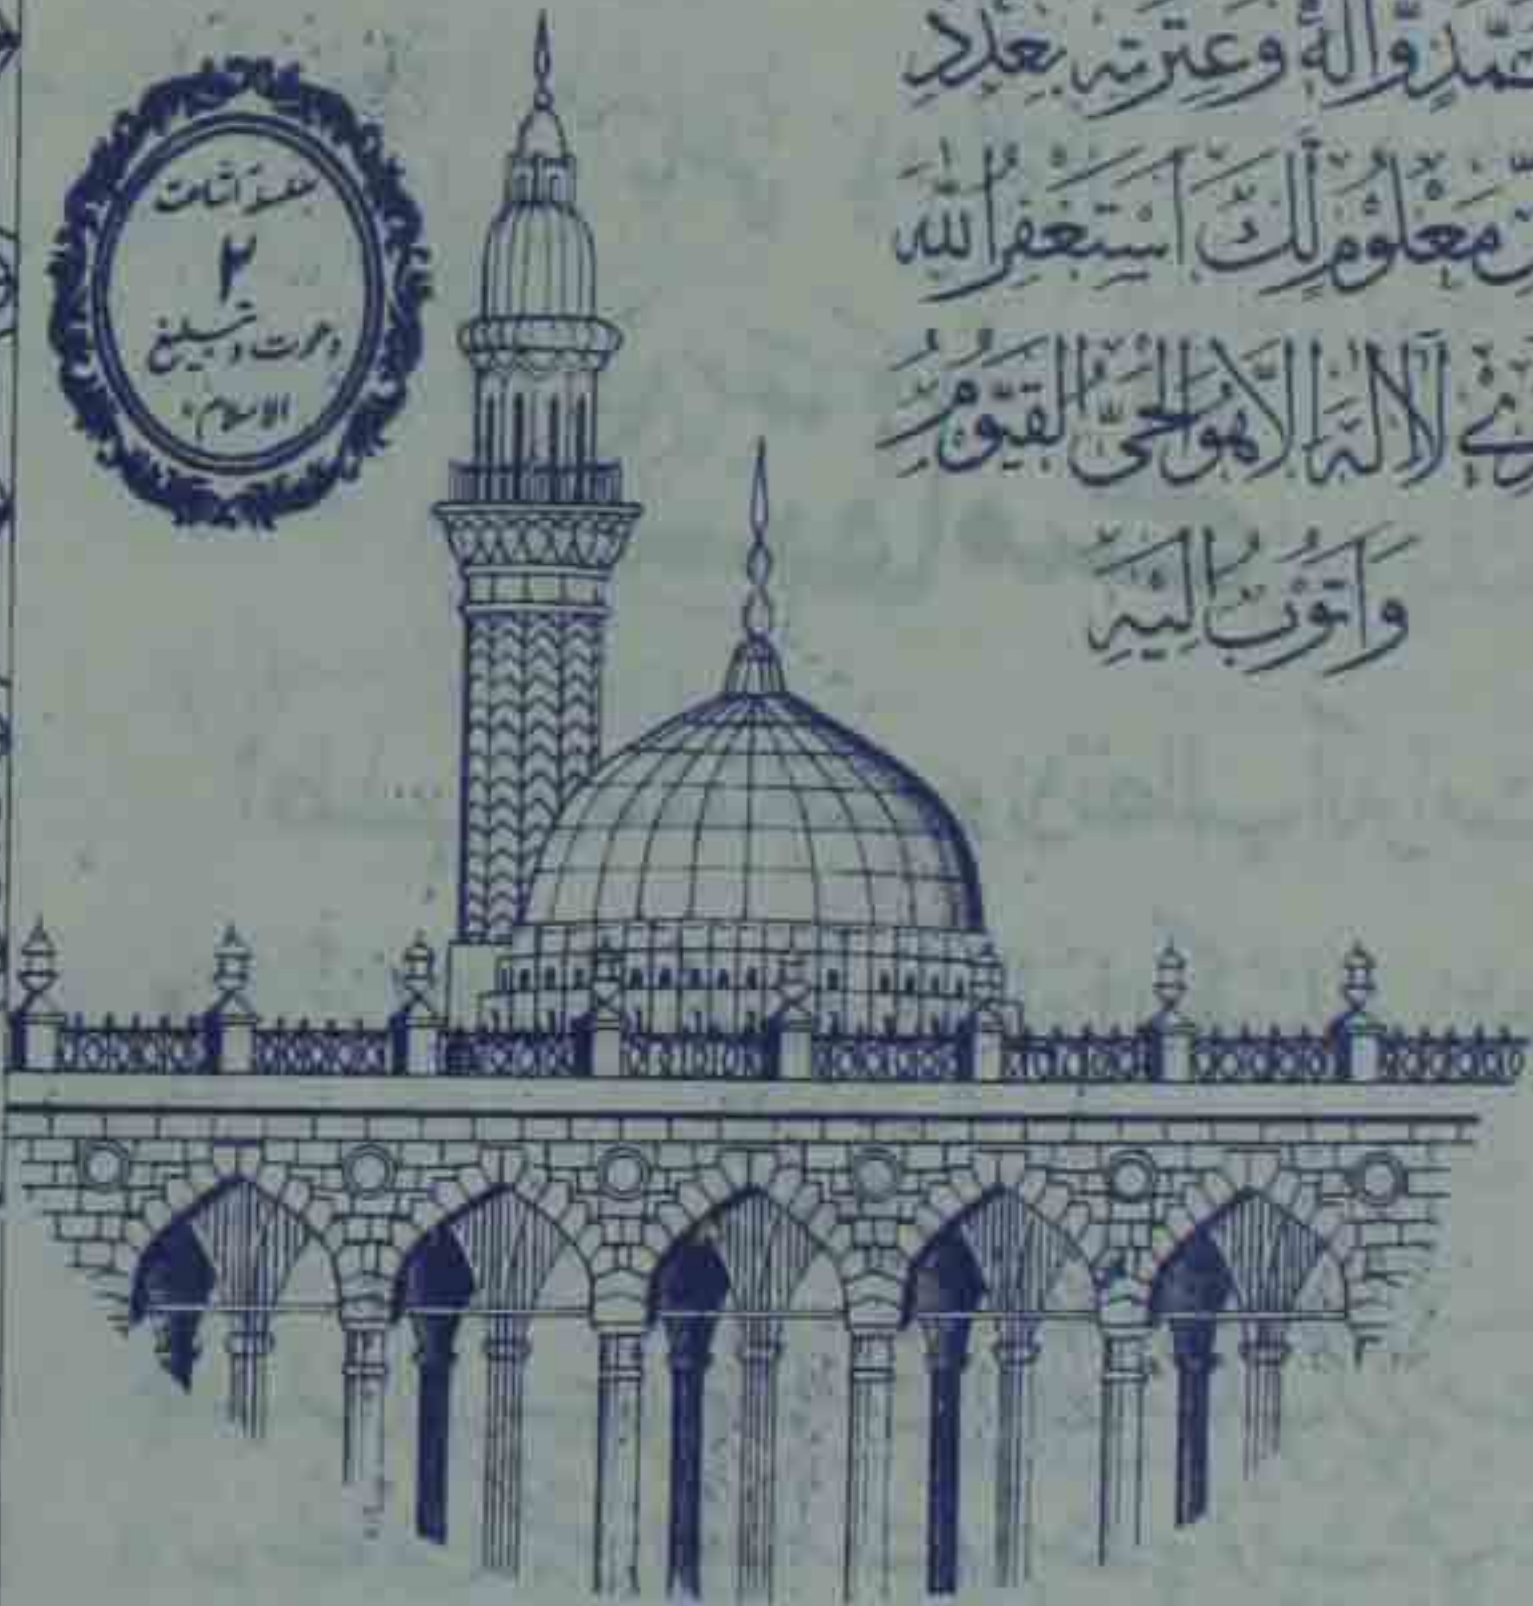 وَّاٰلِهٖ وَعِتْرَتِهٖ بِعَدَدِ
مَعْلُوْمٍ لَّكَ اَسْتَغْفِرُ اللّٰهَ
لَآ اِلٰهَ اِلَّا هُوَ الْحَىُّ الْقَيُّوْمُ
وَاَتُوْبُ اِلَيْهِ
سلسلۂ اشاعت
۲
دعوت و تبلیغ
الاسلام